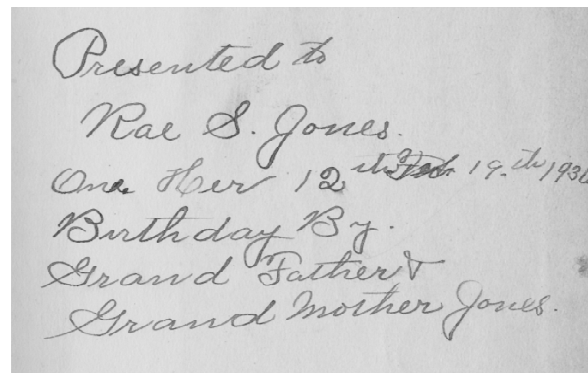 Presented to
Rae S. Jones.
One Her 12th Feb. 19-th/193
Birthday By.
Grand Father &
Grand Mother Jones.